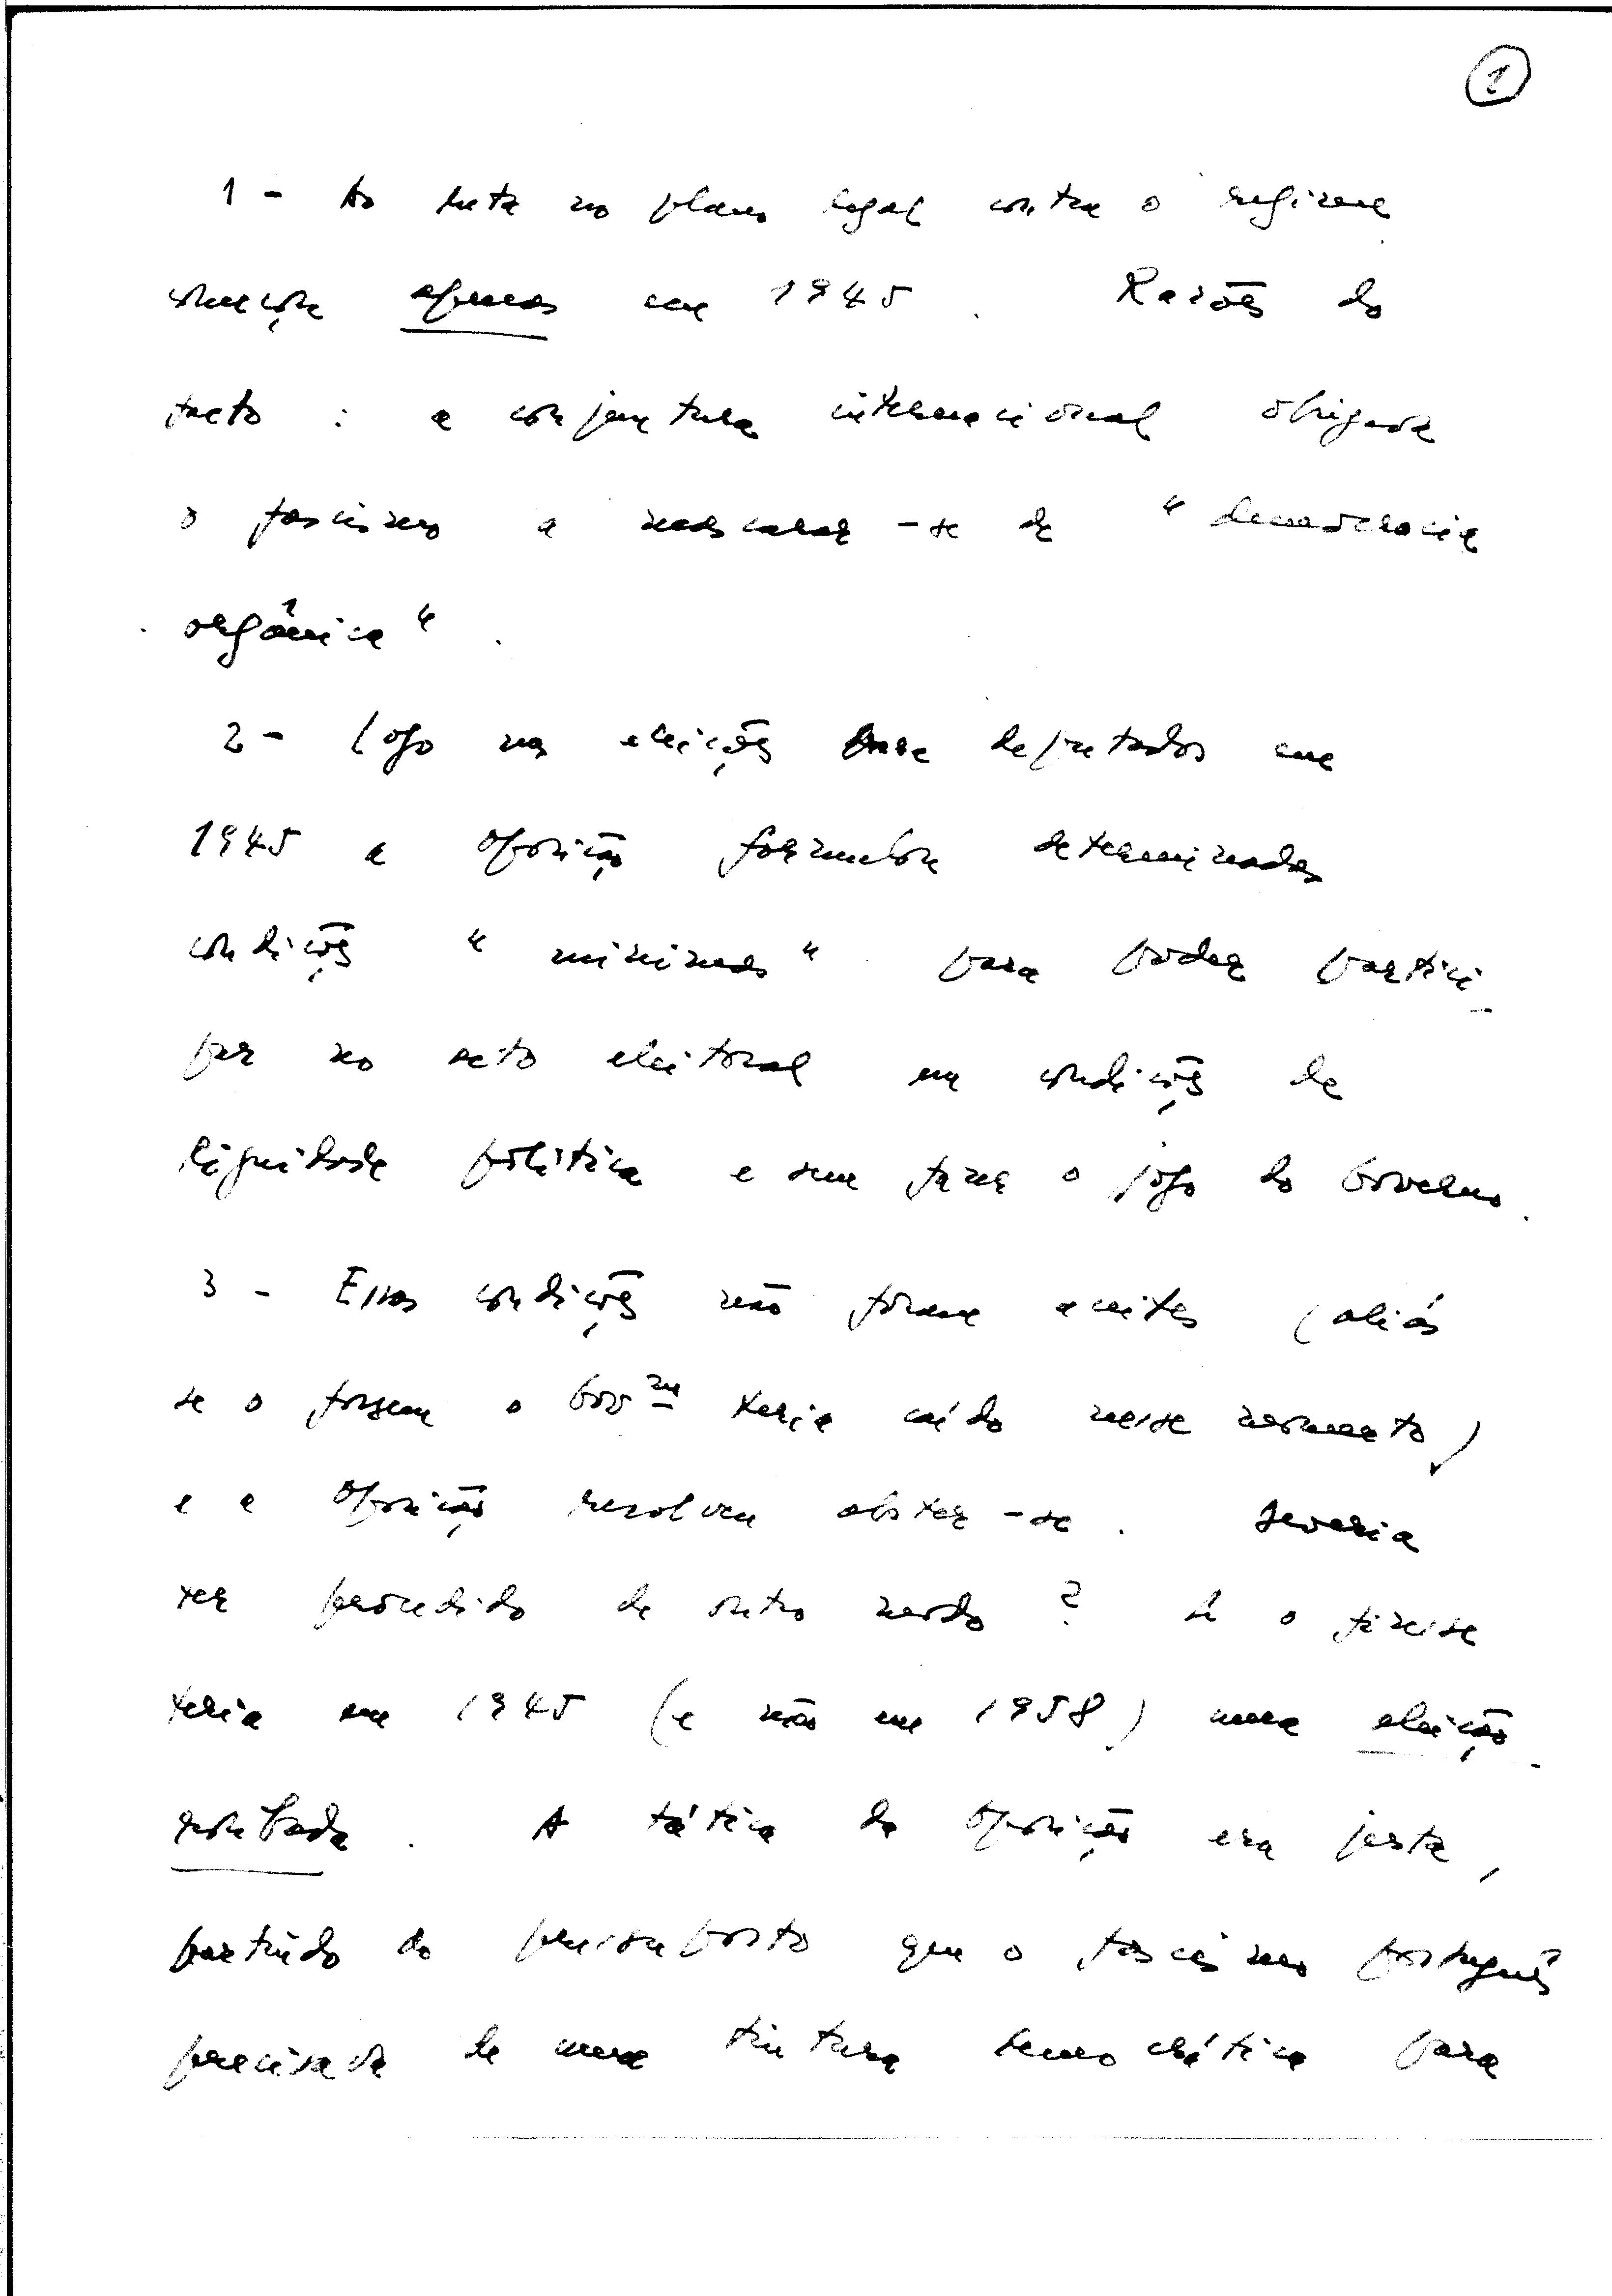 1
1 - A luta no plano legal contra o regime
começou apenas em 1945. Razões do
facto : a conjuntura internacional obrigava
o fascismo a mascarar-se de "democracia
orgânica".
2 - Logo nas eleições para deputados em
1945 a oposição formulou determinadas
condições "mínimas" para poder partici-
par no acto eleitoral em condições de
dignidade política e sem fazer o jogo do Governo.
3 - Essas condições não foram aceites (aliás
se o fossem o Govno teria caído nesse momento)
e a oposição resolveu abster-se. Deveria
ter procedido de outro modo? Se o fizesse
teria em 1945 (e não em 1958) uma eleição
roubada. A tática da oposição era justa,
partindo do pressuposto que o fascismo português
precisava de uma tintura democrática para